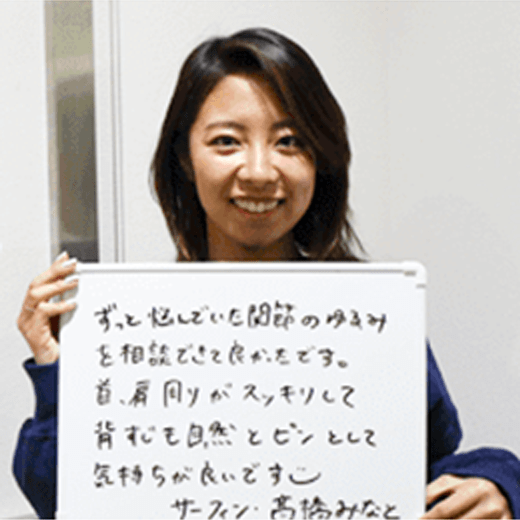 ずっと悩んでいた関節のゆるみ
を相談できて良かったです。
首、肩回りがスッキリして
背すじも自然とピンとして
気持ちが良いです
サーフィン・高橋みなと